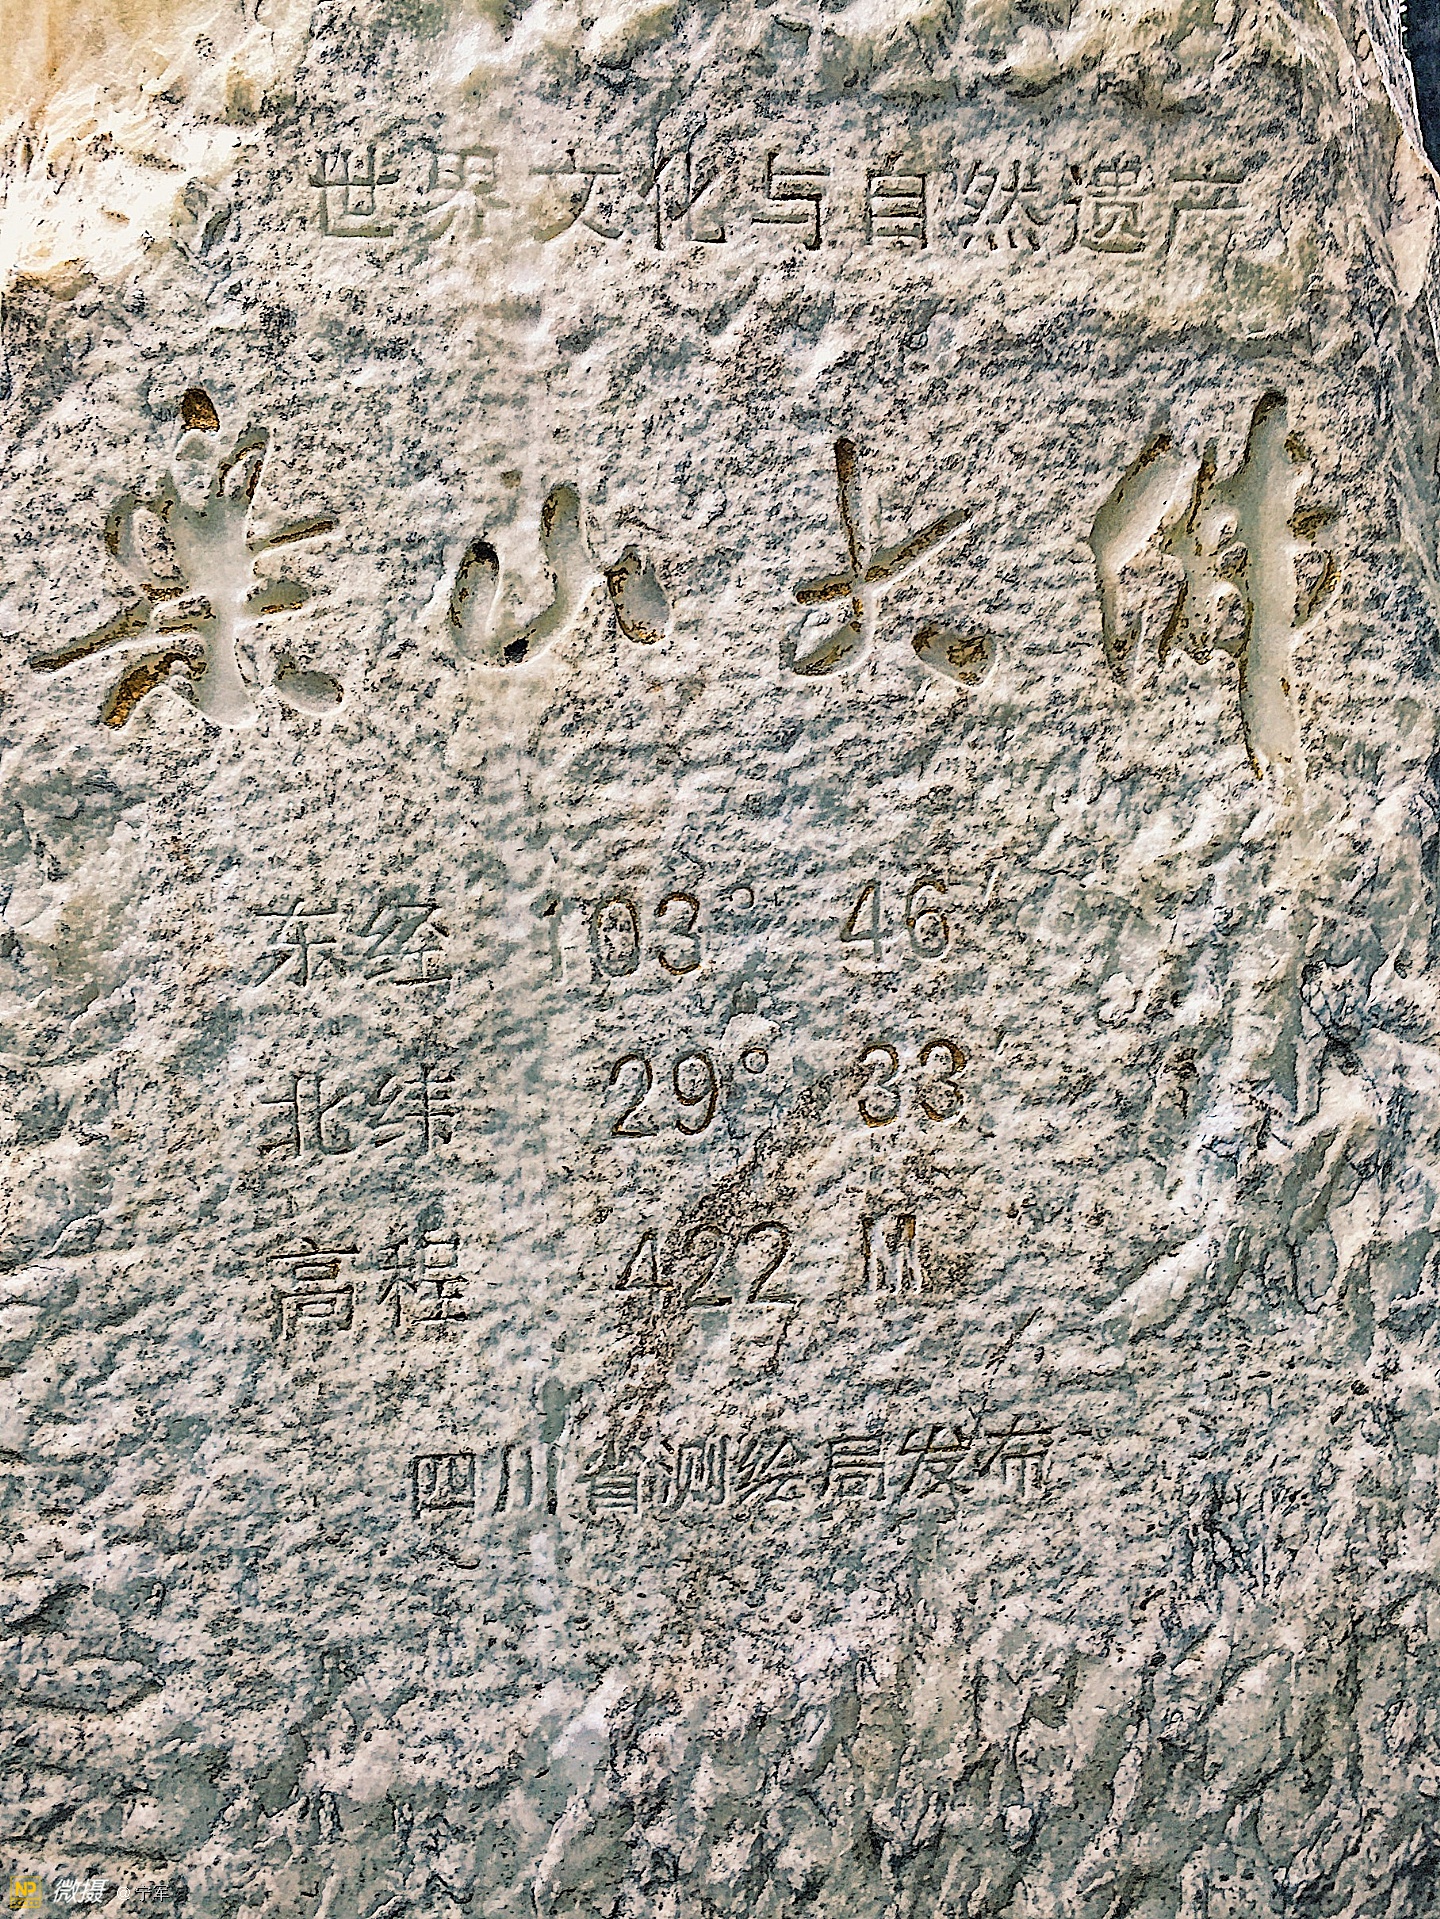 世界文化与自然遗产
樂山大佛
东经 103° 46′
北纬 29° 33
高程 422 M
四川省测绘局发布
微摄 @ 宁军